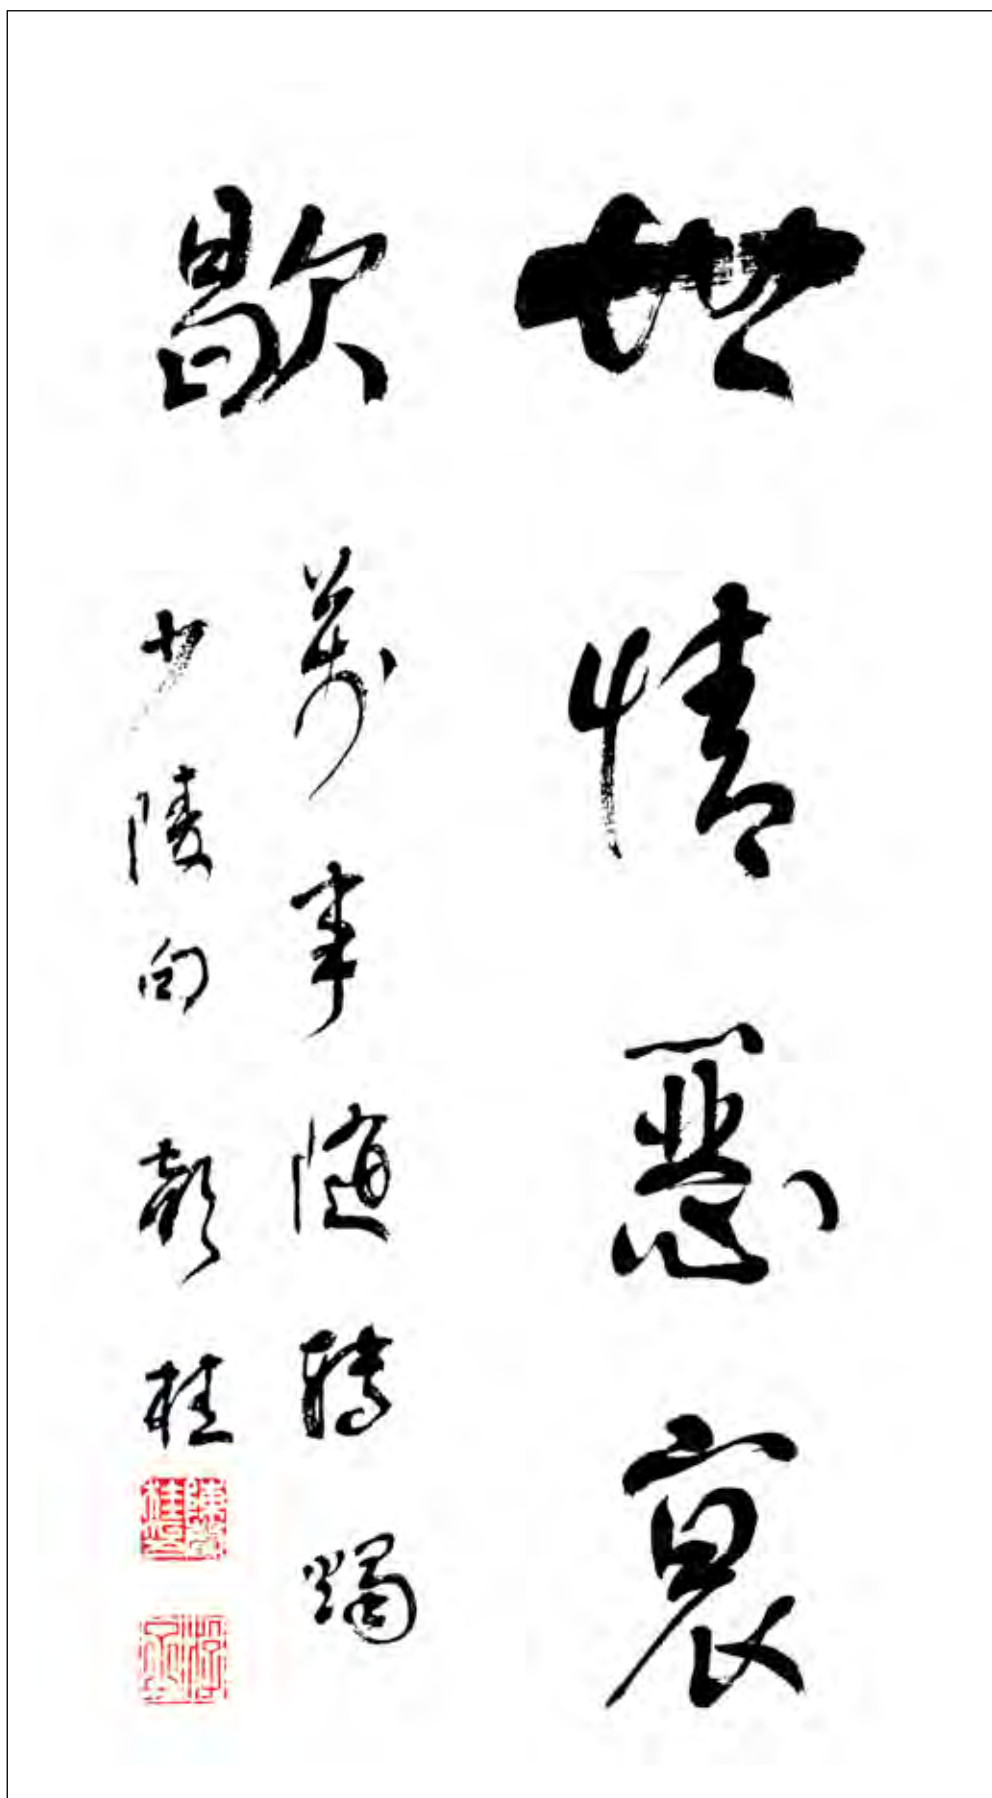 世情惡衰
歇
萬事隨轉燭
少陵句 馨桂